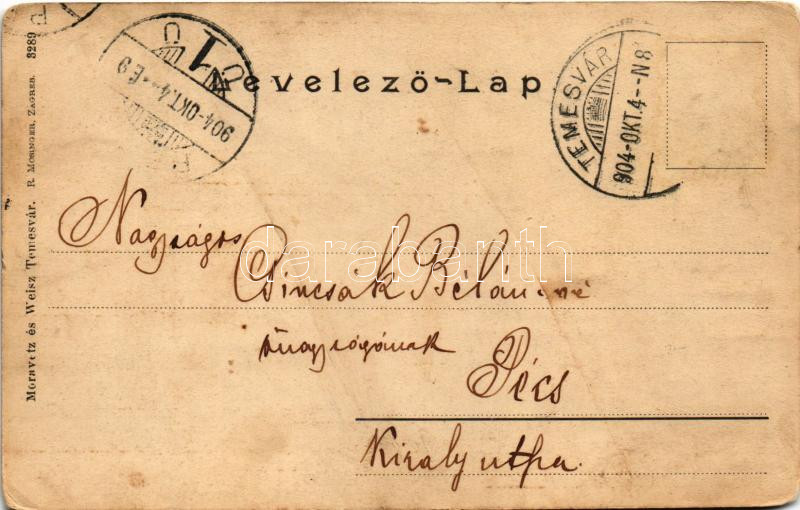 Levelező-Lap
TEMESVÁR
904-OKT.4--N8
904-OKT.4--E9
Nagyságos
Csincsák Béláné
őnagyságának
Pécs
Király utca
Moravetz és Weisz Temesvár. R. Mosinger, Zagreb. 3289
darabanth